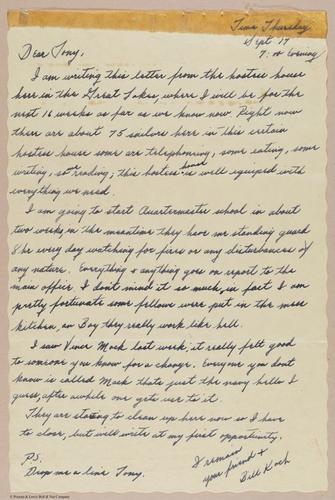 Time Thursday
Sept 17
7:00 Evening
Dear Tony,
I am writing this letter from the hostess house
here in the Great Lakes, where I will be for the
next 16 weeks as far as we know now. Right now
there are about 75 sailors here in this certain
hostess house some are telephoning, some eating, some
writing, so reading, this hostess house is well equiped with
everything we need.
I am going to start Quartermaster school in about
two weeks, in the meantime they have me standing guard
8 hr every day watching for fires or any disturbances of
any nature. Everything & anything goes on report to the
main office. I don't mind it so much, in fact I am
pretty fortunate some fellows were put in the mess
kitchen, an Boy they really work like hell.
I saw Mack last week, it really felt good
to someone you know for a change. Everyone you dont
know is called Mack thats just the navy hello I
guess, after awhile one gets use to it.
They are starting to clean up here now so I have
to close, but will write at my first opportunity.
I remain
your friend &
Bill Koch
P.S.
Drop me a line Tony.
© Preston & Lewis Bolt & Nut Company